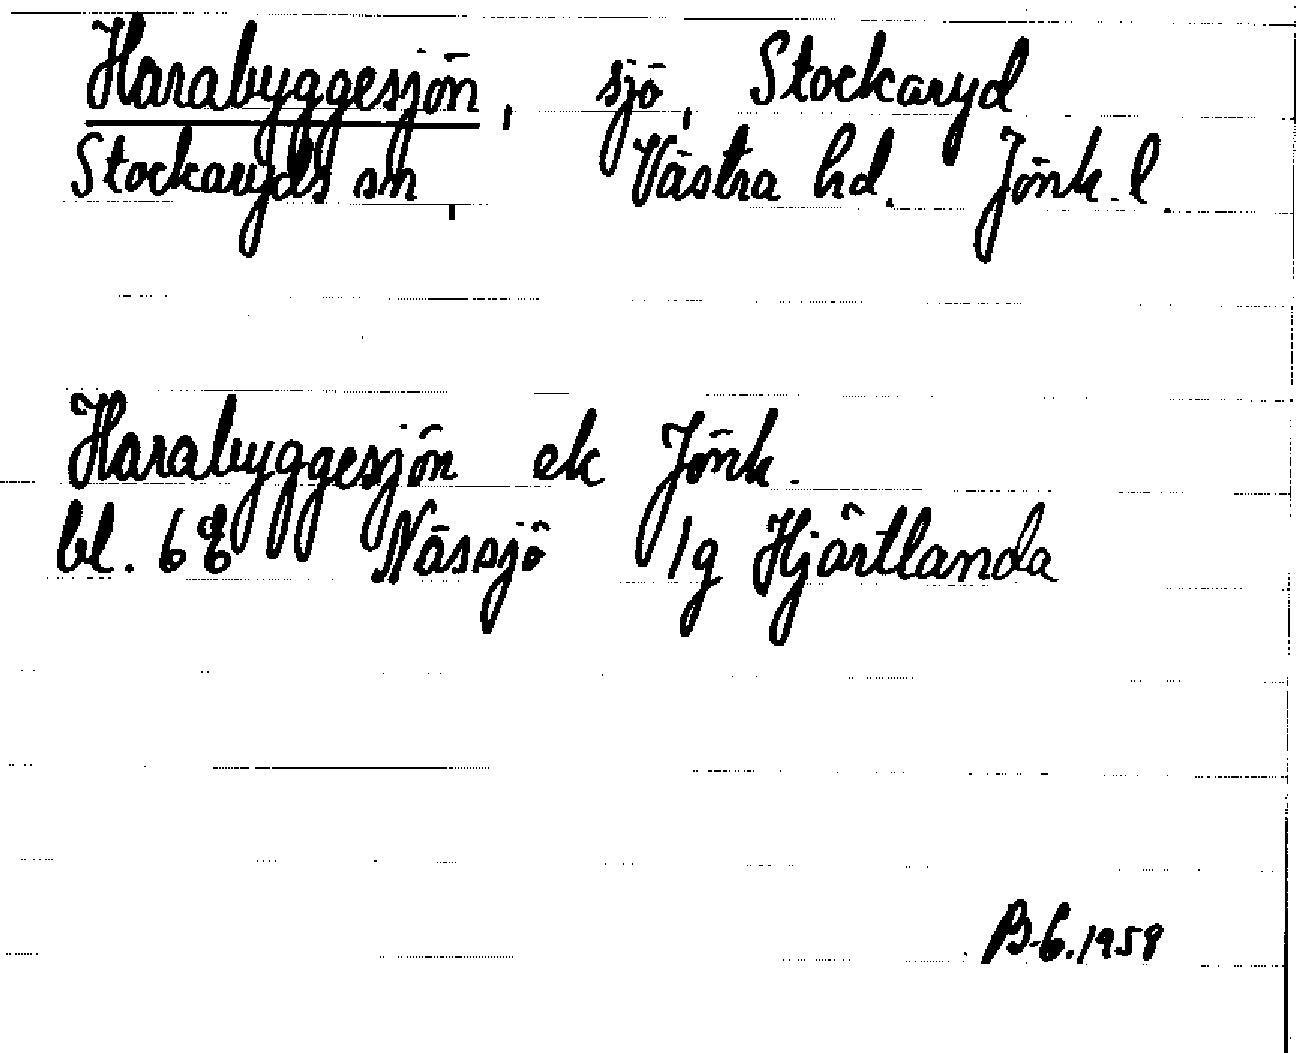 Harabyggesjön, sjö, Stockaryd
Stockaryds sn, Västra hd. Jönk. l.
Harabyggesjön ek Jönk.
bl. 68 Nässjö 1g Hjärtlanda
B-6.1958